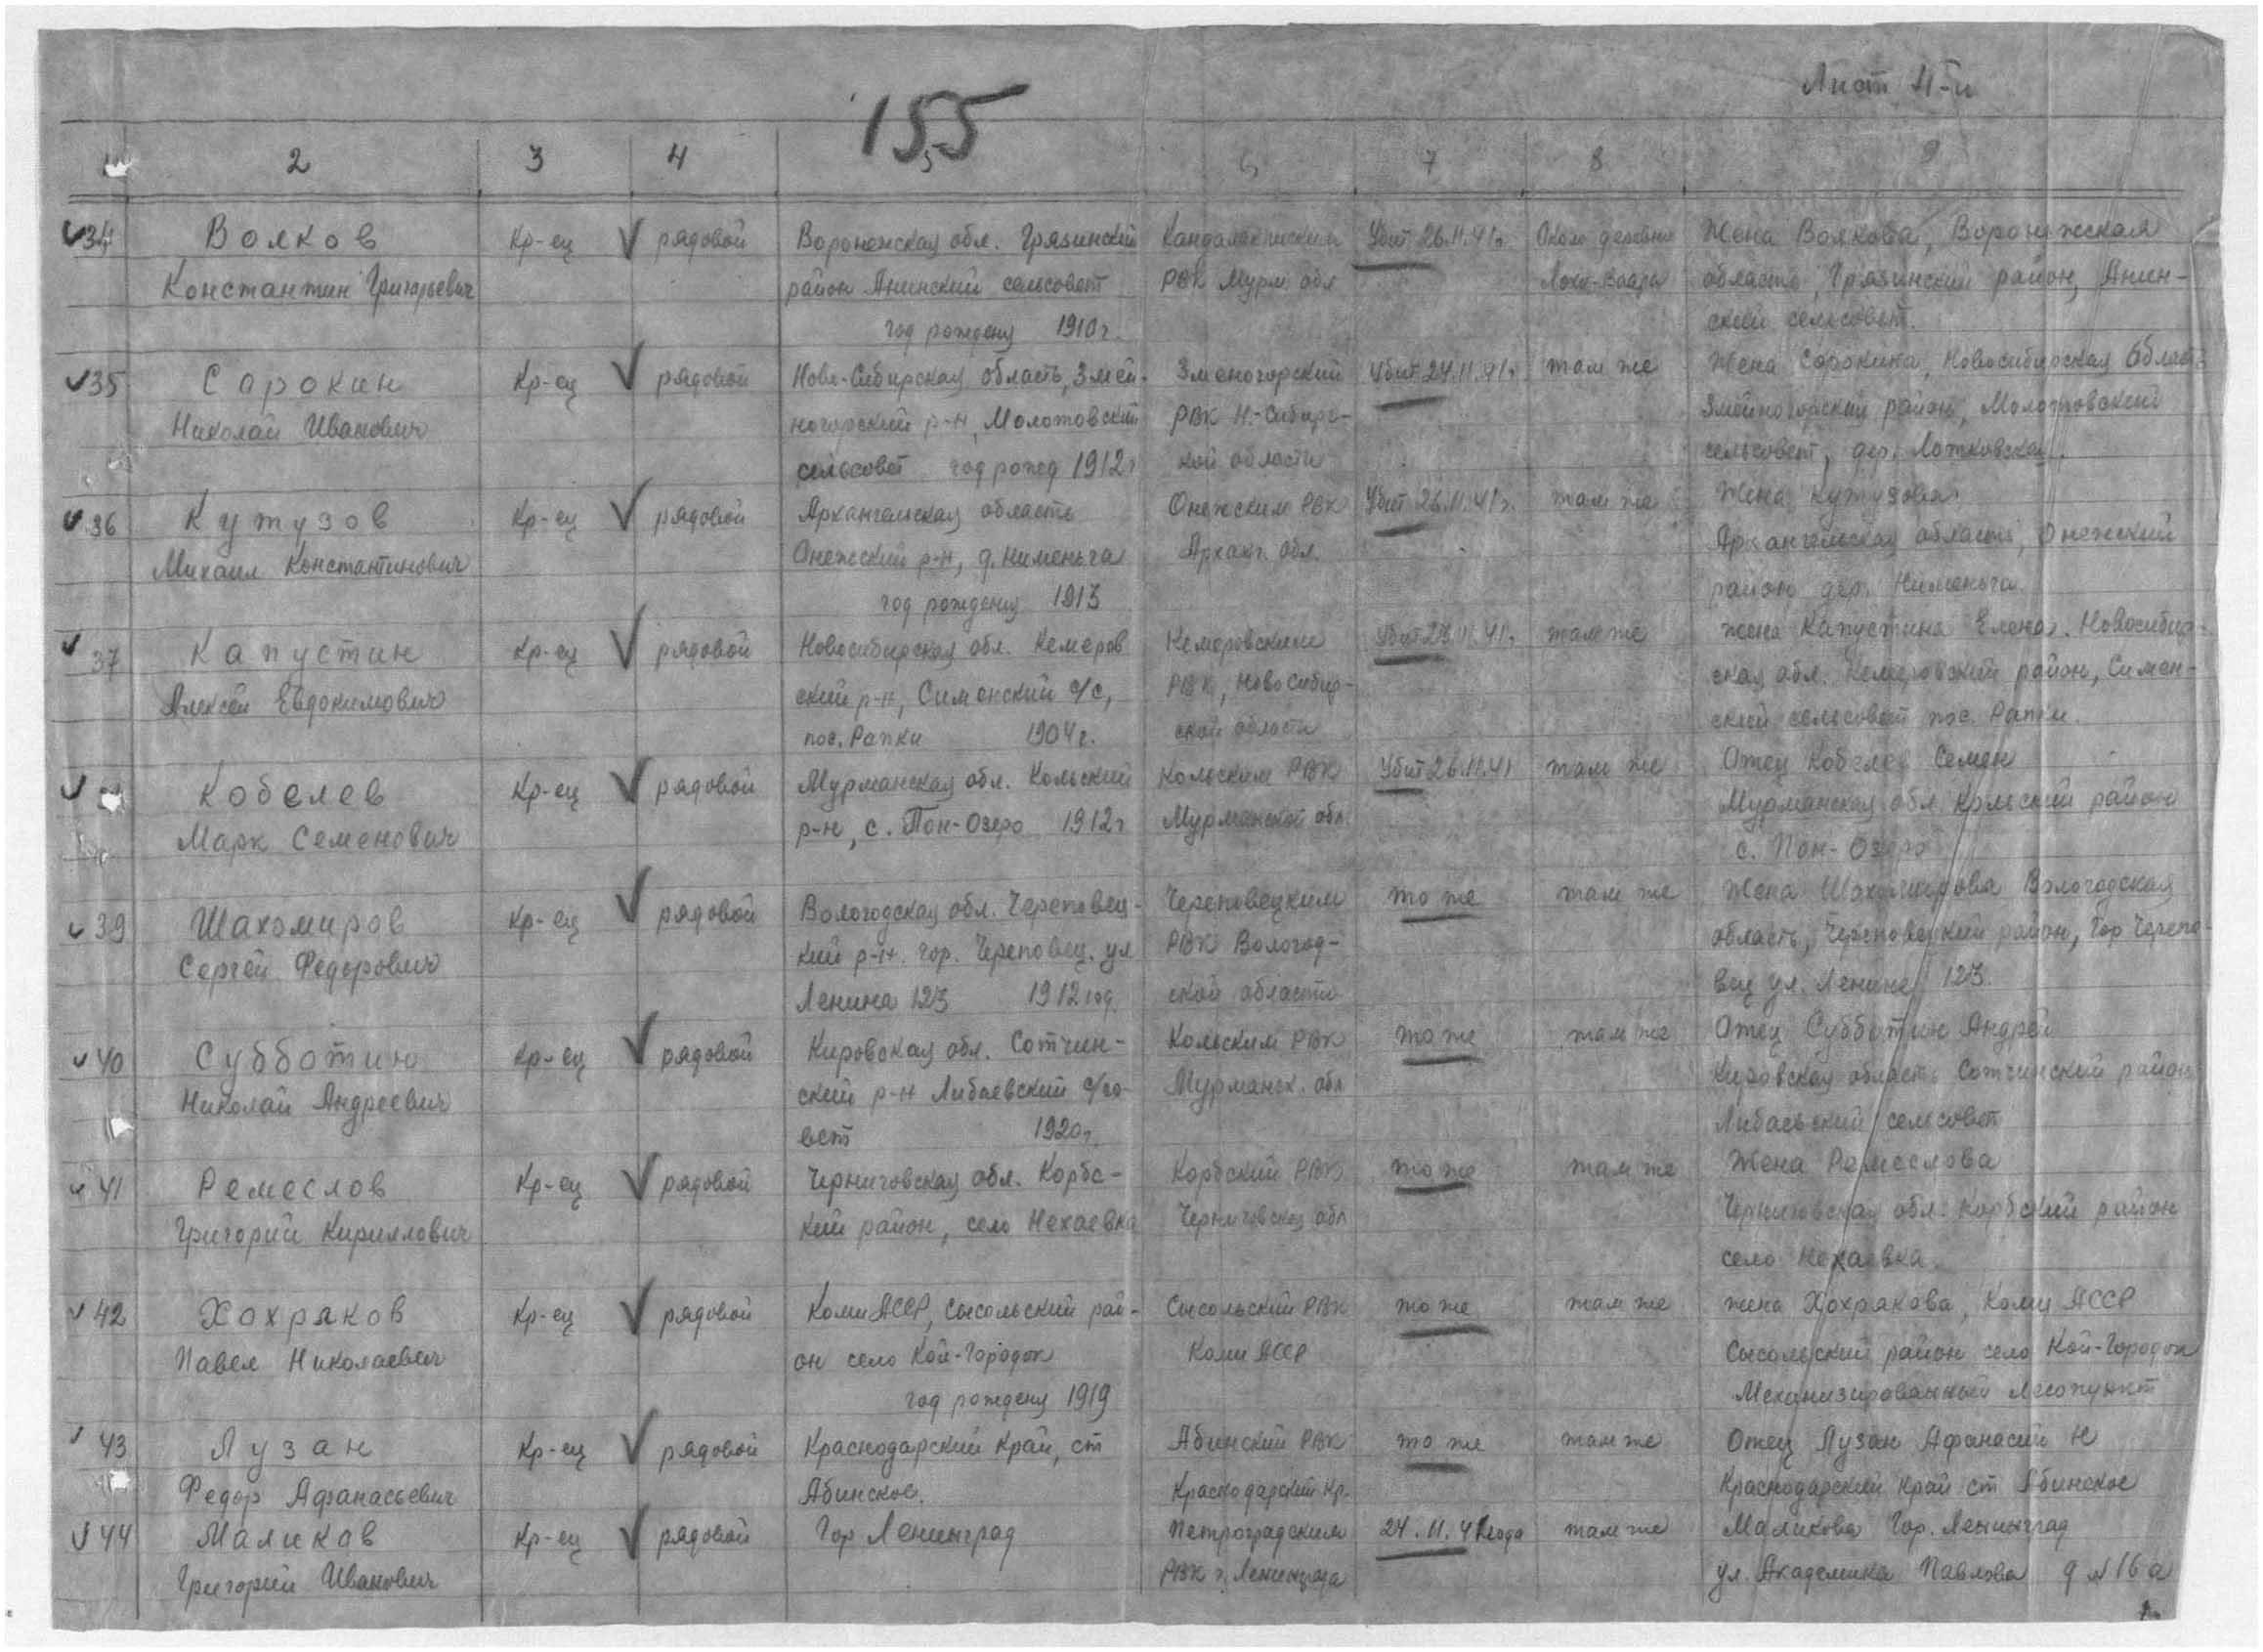 Лист 4-й
155
1 2 3 4 5 6 7 8 9
34 Волков Кр-ец рядовой Воронежская обл. Грязинский Кандалакшским Убит 26.11.41г. Около деревни Жена Волкова, Воронежская
Константин Григорьевич район Анинский сельсовет РВК Мурм. обл Лохи-Ваара область, Грязинский район, Анин-
год рождения 1910г. ский сельсовет.
35 Сорокин Кр-ец рядовой Ново-Сибирская область, Змеи- Змеиногорский Убит 24.11.41г. там же Жена Сорокина, Новосибирская область
Николай Иванович ногорский р-н, Молотовский РВК Н.-Сибирс- Змеиногорский район, Молотовский
сельсовет год рожд 1912г кой области сельсовет, дер. Лотковская.
36 Кутузов Кр-ец рядовой Архангельская область Онежским РВК Убит 26.11.41г. там же Жена Кутузова
Михаил Константинович Онежский р-н, д. Нименьга Арханг. обл. Архангельская область, Онежский
год рождения 1913 район дер. Нименьга.
37 Капустин Кр-ец рядовой Новосибирская обл. Кемеров Кемеровским Убит 11.41г. там же жена Капустина Елена. Новосибир-
Алексей Евдокимович ский р-н, Сименский с/с, РВК, Новосибир- ская обл. Кемеровский район, Симен-
пос. Рапки 1904г. ской области ский сельсовет пос. Рапки.
Кобелев Кр-ец рядовой Мурманская обл. Кольский Кольским РВК Убит 26.11.41 там же Отец Кобелев Семен
Марк Семенович р-н, с. Пон-Озеро 1912г Мурманской обл. Мурманская обл. Кольский район
с. Пон-Озеро
39 Шахомиров Кр-ец рядовой Вологодская обл. Череповец- Череповецким то же там же Жена Шахомирова Вологодская
Сергей Федорович кий р-н. гор. Череповец. ул РВК Вологод- область, Череповецкий район, Гор Черепо-
Ленина 123 1912 год ской области вец ул. Ленина 123.
40 Субботин Кр-ец рядовой Кировская обл. Сотчин- Кольским РВК то же там же Отец Субботин Андрей
Николай Андреевич ский р-н Либаевский с/со- Мурманск. обл Кировская область Сотчинский район
вет 1920г. Либаевский сельсовет
41 Ремеслов Кр-ец рядовой Черниговская обл. Корбс- Корбский РВК то же там же Жена Ремеслова
Григорий Кириллович кий район, село Нехаевка Черниговская обл Черниговская обл. Корбский район
село Нехаевка.
42 Хохряков Кр-ец рядовой Коми АССР, Сысольский рай- Сысольский РВК то же там же жена Хохрякова, Коми АССР
Павел Николаевич он село Кой-Городок Коми АССР Сысольский район село Кой-Городок
год рождения 1919 Механизированный лесопункт
43 Лузан Кр-ец рядовой Краснодарский край, ст Абинский РВК то же там же Отец Лузан Афанасий Н
Федор Афанасьевич Абинское. Краснодарский кр. Краснодарский край ст Абинское
44 Маликов Кр-ец рядовой Гор Ленинград Петроградским 24.11.41года там же Маликова Гор. Ленинград
Григорий Иванович РВК г. Ленинграда ул. Академика Павлова д №16а